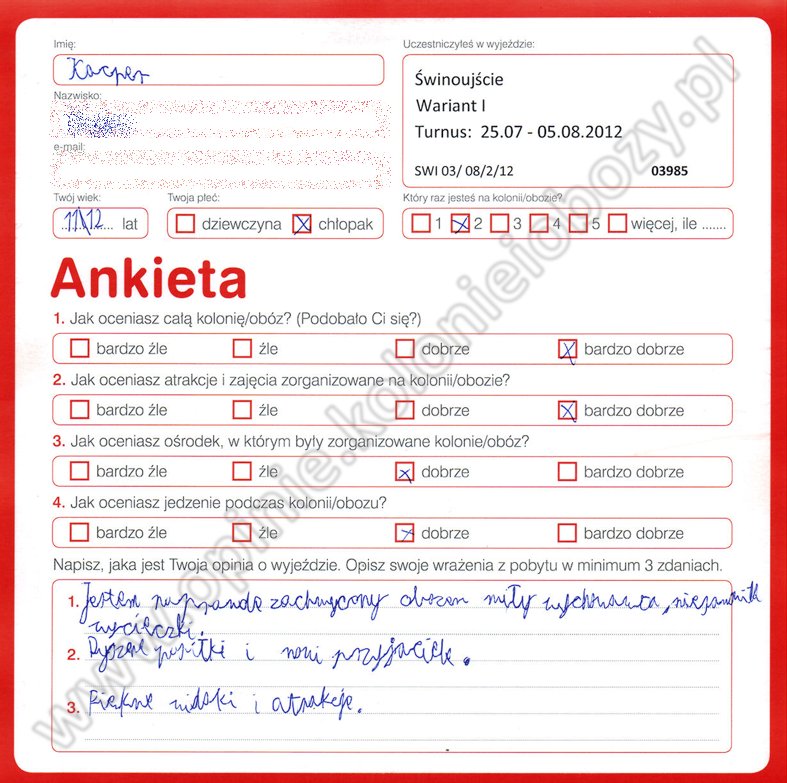 Imię:
Kacper
Nazwisko:
e-mail:
Twój wiek:
11\12 lat
Twoja płeć:
dziewczyna chłopak
Uczestniczyłeś w wyjeździe:
Świnoujście
Wariant I
Turnus: 25.07 - 05.08.2012
SWI 03/ 08/2/12 03985
Który raz jesteś na kolonii/obozie?
1 2 3 4 5 więcej, ile .......
Ankieta
1. Jak oceniasz całą kolonię/obóz? (Podobało Ci się?)
bardzo źle źle dobrze bardzo dobrze
2. Jak oceniasz atrakcje i zajęcia zorganizowane na kolonii/obozie?
bardzo źle źle dobrze bardzo dobrze
3. Jak oceniasz ośrodek, w którym były zorganizowane kolonie/obóz?
bardzo źle źle dobrze bardzo dobrze
4. Jak oceniasz jedzenie podczas kolonii/obozu?
bardzo źle źle dobrze bardzo dobrze
Napisz, jaka jest Twoja opinia o wyjeździe. Opisz swoje wrażenia z pobytu w minimum 3 zdaniach.
1. Jestem naprawdę zachwycony obozem miły wychowawca,
wycieczki.
2. Pyszne posiłki i nowi przyjaciele.
3. Piękne widoki i atrakcje.
www.opinie.kolonieiobozy.pl